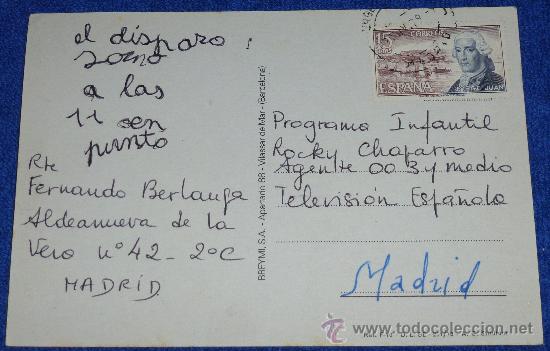 el disparo
sono
a las
11 en
punto
Rte
Fernando Berlanga
Aldeanueva de la
Vera nº 42 - 2º C
MADRID
BREYMI, S.A. - Apartado 88 - Vilassar de Mar - (Barcelona)
15
PTAS
CORREOS
ESPAÑA
JORGE JUAN
Programa Infantil
Rocky Chaparro
Agente 003 y medio
Televisión Española
Madrid
www.todocoleccion.net